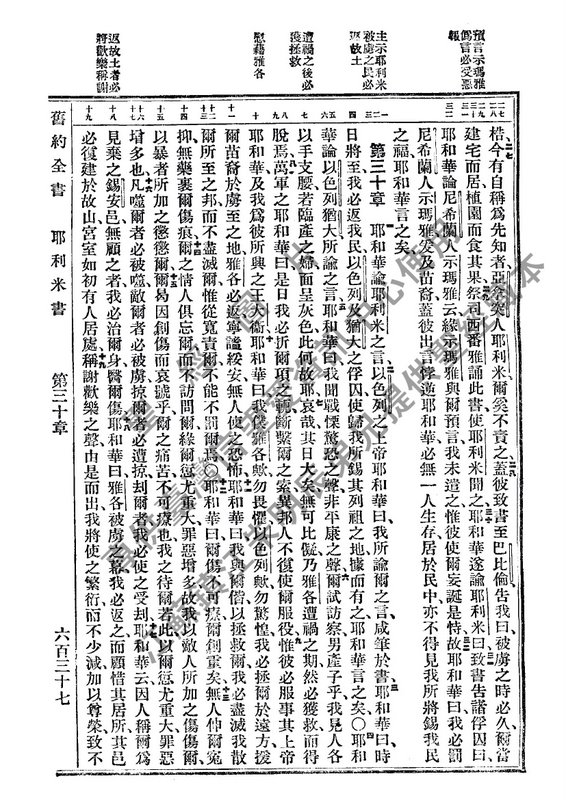 預言示瑪雅
僞言必受惡
報
主示耶利米
被虜之民必
返故土
遭禍之後必
獲拯救
慰藉雅各
返故土者必
將歡樂稱謝
梏今有自稱爲先知者亞拿突人耶利米爾奚不責之蓋彼致書至巴比倫告我曰被虜之時必久爾當
建宅而居植園而食其果祭司西番雅誦此書使耶利米聞之耶和華遂諭耶利米曰致書告諸俘囚曰
耶和華論尼希蘭人示瑪雅云緣示瑪雅與爾預言我未遣之惟彼使爾妄誕是恃故耶和華曰我必罰
尼希蘭人示瑪雅爰及苗裔蓋彼出言悖逆耶和華必無一人生存居於民中亦不得見我所將錫我民
之福耶和華言之矣
第三十章 耶和華諭耶利米之言以色列之上帝耶和華曰我所諭爾之言咸筆於書耶和華曰時
日將至我必返我民以色列及猶大之俘囚使歸我所錫其列祖之地據而有之耶和華言之矣〇耶和
華論以色列猶大所諭之言耶和華曰我聞戰慄驚恐之聲非平康之聲爾試訪察男產子乎我見人各
以手支腰若臨產之婦而呈灰色此何故耶哀哉其日大矣無可比儗乃雅各遭禍之期然必獲救而得
脫焉萬軍之耶和華曰是日我必折爾項之軛斷繫爾之索異邦人不復使爾服役惟彼必服事其上帝
耶和華及我爲彼所興之王大衛耶和華曰我僕雅各歟勿畏懼以色列歟勿驚惶我必拯爾於遠方援
爾苗裔於虜至之地雅各必返寧謐綏安無人使之恐怖耶和華曰我與爾偕以拯救爾我必盡滅我散
爾所至之邦而不盡滅爾惟從寬責爾不能不罰爾焉〇耶和華曰爾傷不可療爾創重矣無人伸爾冤
抑無藥裹爾傷痕爾之情人俱忘爾而不訪問爾緣爾愆尤重大罪惡增多故我以敵人所加之傷傷爾
以暴者所加之懲懲爾爾曷因創傷而哀號乎爾之痛苦不可療也我之待爾若此以爾愆尤重大罪惡
增多也凡噬爾者必被噬敵爾者必被虜掠爾者必遭掠刼爾者我必使之受刼耶和華云因人稱爾爲
見棄之錫安邑無顧之者我必治爾身醫爾傷耶和華曰雅各被虜之幕我必返之而顧惜其居所其邑
必復建於故山宮室如初有人居處稱謝歡樂之聲由是而出我將使之繁衍而不少減加以尊榮致不
舊約全書 耶利米書 第三十章 六百三十七